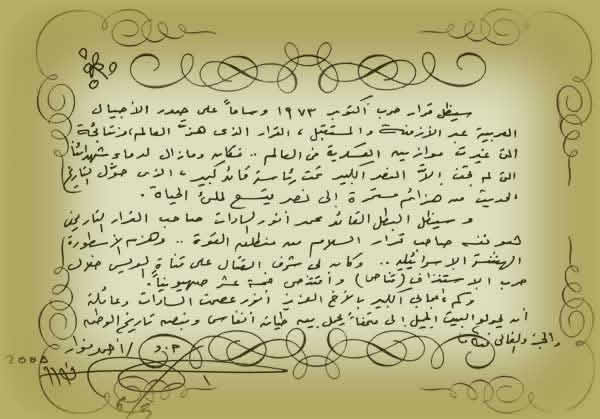 سيظل قرار حرب أكتوبر ١٩٧٣ وساماً على صدر الأجيال
العربية عبر الأزمنة والمستقبل ، القرار الذى هزّ العالم ، ونتائجه
التى غيرت موازين العسكرية فى العالم .. فكان ومازال لدماء شهدائنا
التى لم تجف إلا النصر الكبير تحت رئاسة قائد كبير ، الذى حوّل التاريخ
الحديث من هزائم مستمرة إلى نصر يتسع لملئ الحياة .
وسيظل البطل القائد محمد أنور السادات صاحب القرار التاريخى
صاحب قرار السلام من منطلق القوة .. وهزم الأسطورة
الإسرائيلية .. وكان لى شرف القتال على قناة السويس خلال
حرب الإستنزاف ( شاهين ) خمسة عشر صهيونياً .
وكم إعجابى الكبير بالأخ العزيز أنور عصمت السادات وعائلته
أن يحولوا البيت الجميل إلى متحفاً يحمل بين طياته أنفاس ونبضه تاريخ الوطن
أحمد نوار
2008